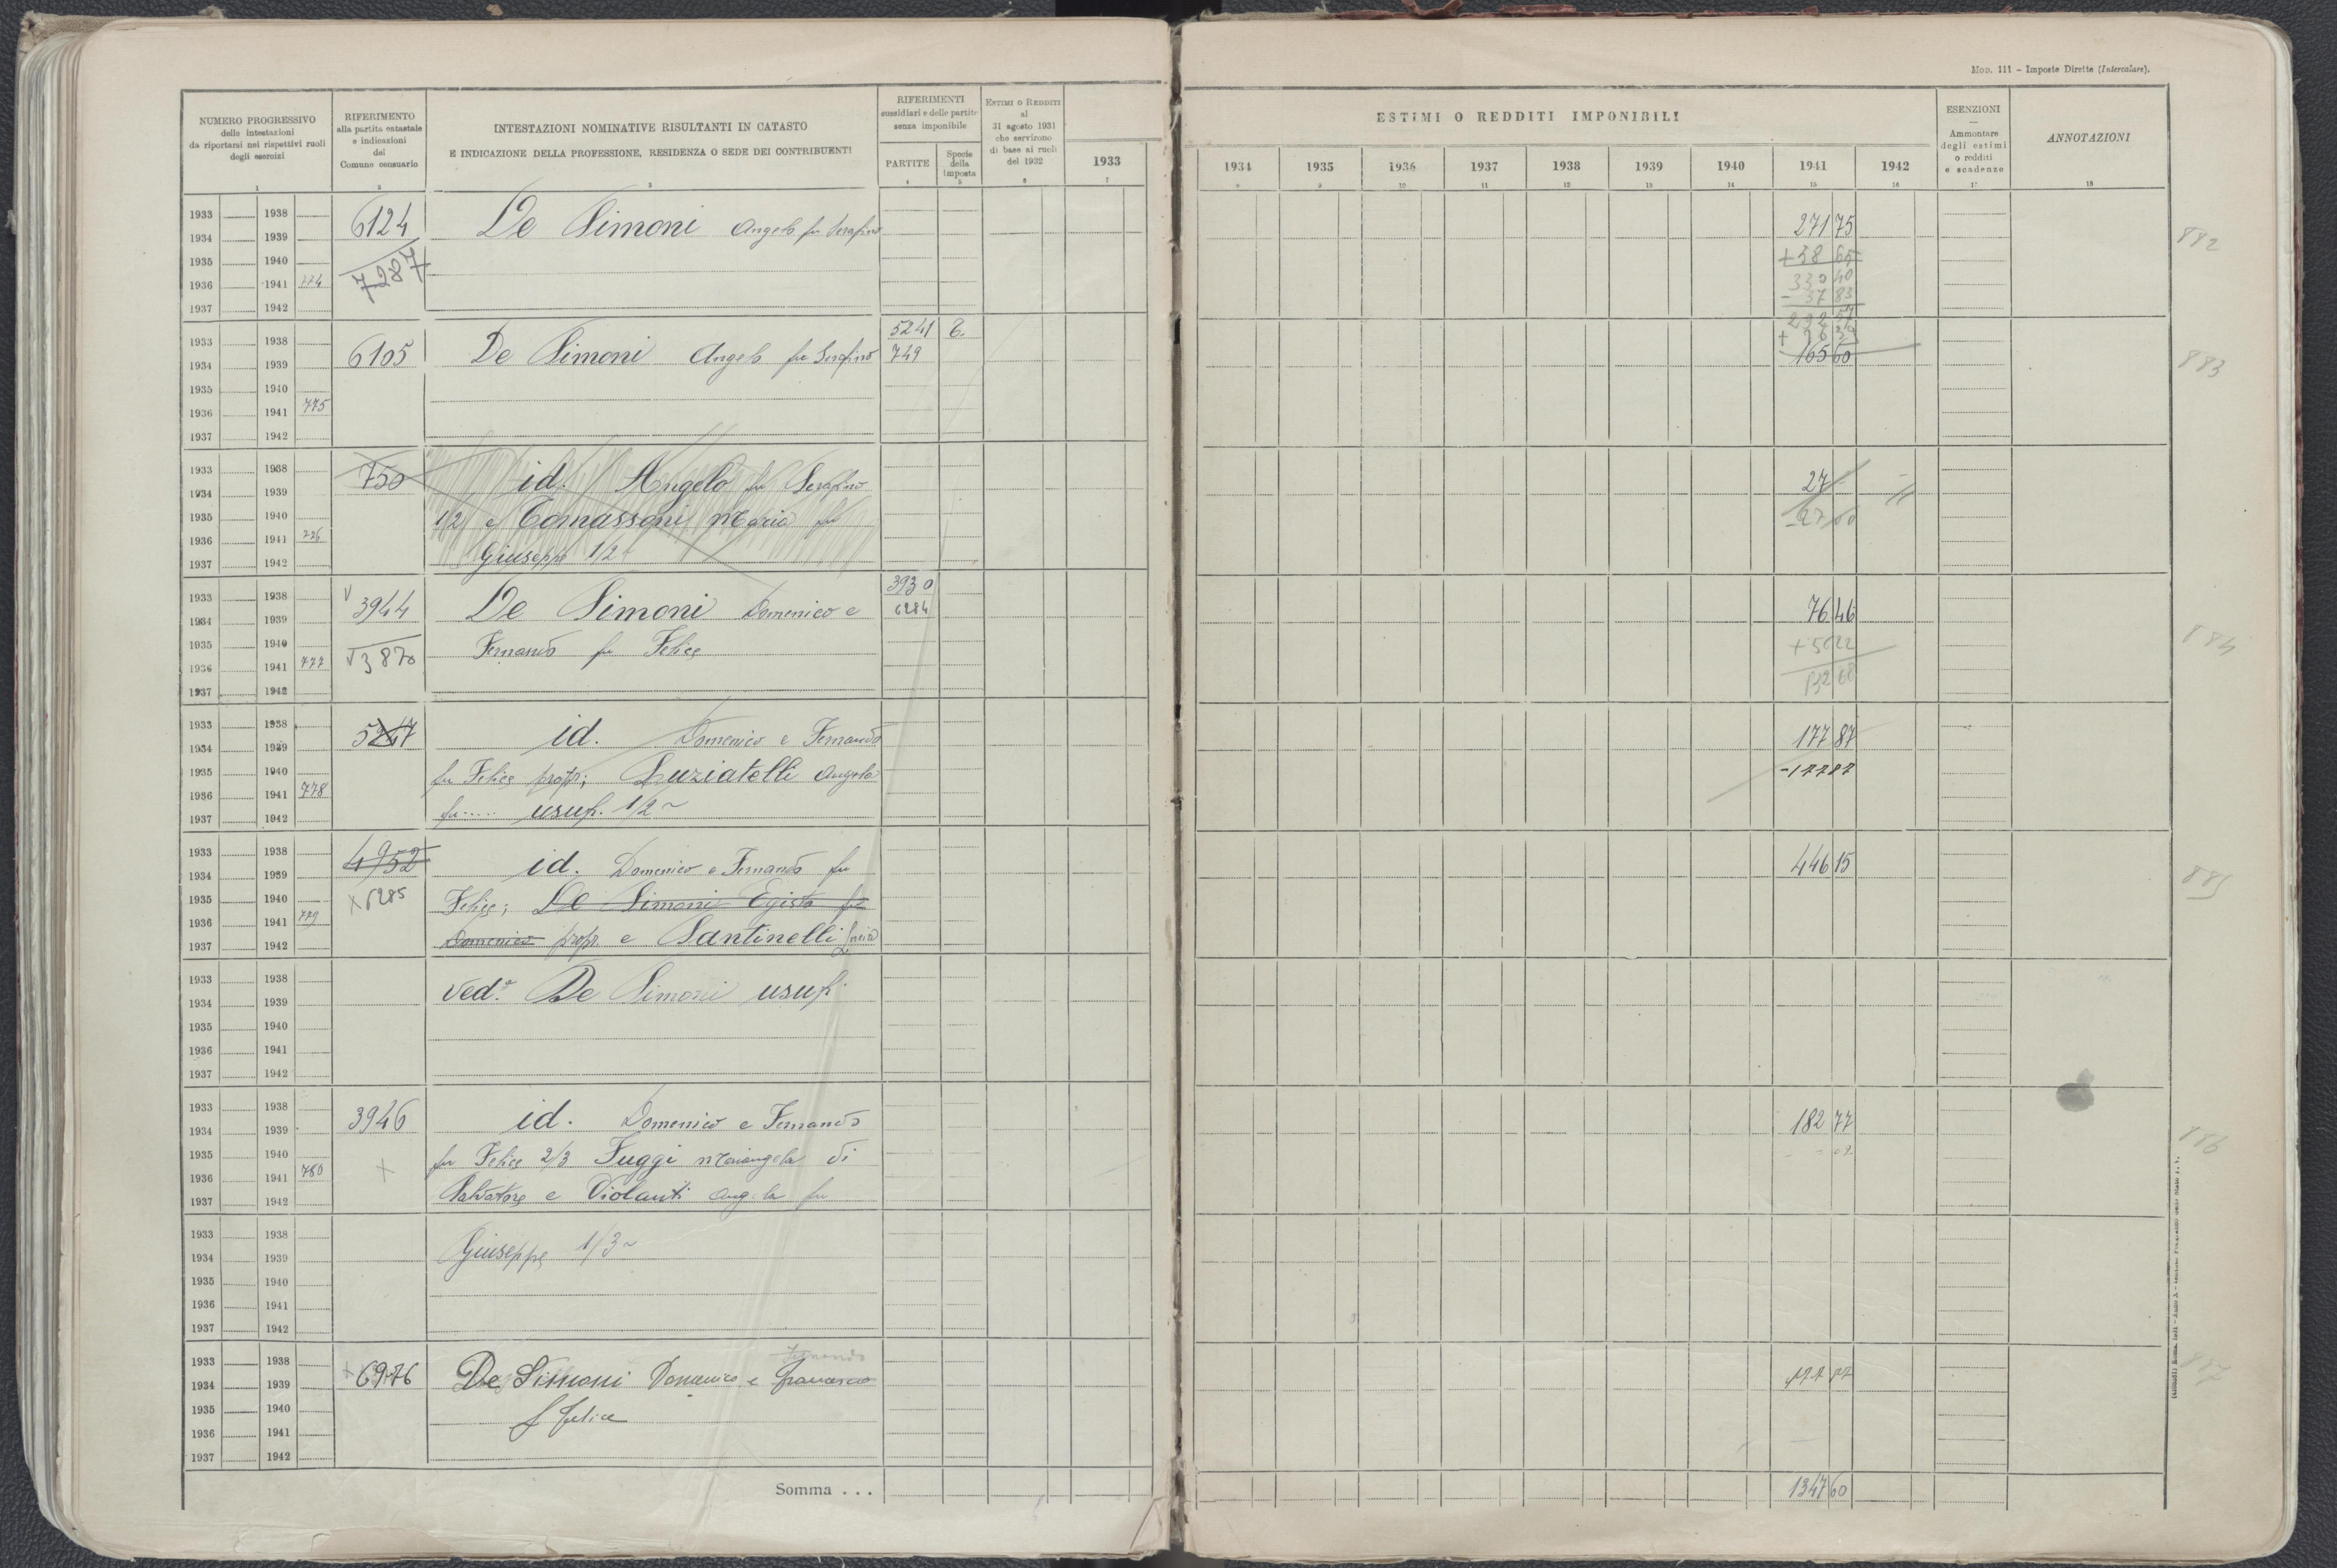 MOD. 111 - Imposte Dirette (Intercalare).
NUMERO PROGRESSIVO
delle intestazioni
da riportarsi nei rispettivi ruoli
degli esercizi
1
RIFERIMENTO
alla partita catastale
e indicazioni
del
Comune censuario
2
INTESTAZIONI NOMINATIVE RISULTANTI IN CATASTO
E INDICAZIONE DELLA PROFESSIONE, RESIDENZA O SEDE DEI CONTRIBUENTI
3
RIFERIMENTI
sussidiari e delle partite
senza imponibile
PARTITE
4
Specie
della
imposta
5
ESTIMI O REDDITI
al
31 agosto 1931
che servirono
di base ai ruoli
del 1932
6
1933
7
ESTIMI O REDDITI IMPONIBILI
1934 1935 1936 1937 1938 1939 1940 1941 1942
8 9 10 11 12 13 14 15 16
ESENZIONI
—
Ammontare
degli estimi
o redditi
e scadenze
17
ANNOTAZIONI
18
1933 1938 6124 De Simoni Angelo fu Serafino 271 75
1934 1939 882
1935 1940 7287 + 58 65
1936 1941 774 330 40
1937 1942 - 37 83
1933 1938 5241 T.
1934 1939 6105 De Simoni Angelo fu Serafino 749 165 60 883
1935 1940
1936 1941 775
1937 1942
1933 1938 750 id. Angelo fu Serafino 27
1934 1939
1935 1940 1/2 e Tomassoni Maria fu - 27 00
1936 1941 776
1937 1942 Giuseppe 1/2
1933 1938 3930
1934 1939 3944 De Simoni Domenico e 6284 76 46
1935 1940 Fernando fu Felice + 56 22 884
1936 1941 777 3870 132 68
1937 1942
1933 1938 5247 id. Domenico e Fernando 177 87
1934 1939
1935 1940 fu Felice propr; Luziatelli Angela - 177 87
1936 1941 778
1937 1942 fu ..... usuf. 1/2
1933 1938 4952 id. Domenico e Fernando fu 446 15
1934 1939 885
1935 1940 x 6285 Felice; De Simoni Egisto fu
1936 1941 779
1937 1942 Domenico propr. e Santinelli
1933 1938 ved.ª De Simoni usuf.
1934 1939
1935 1940
1936 1941
1937 1942
1933 1938 3946 id. Domenico e Fernando 182 77
1934 1939 886
1935 1940 x fu Felice 2/3 Fuggi Mariangela di
1936 1941 780
1937 1942 Salvatore e Violanti Angela fu
1933 1938 Giuseppe 1/3
1934 1939
1935 1940
1936 1941
1937 1942
1933 1938 Fernando
1934 1939 x 6976 De Simoni Domenico e Francesco 177 87 887
1935 1940 f Felice
1936 1941
1937 1942
Somma . . . 1347 60